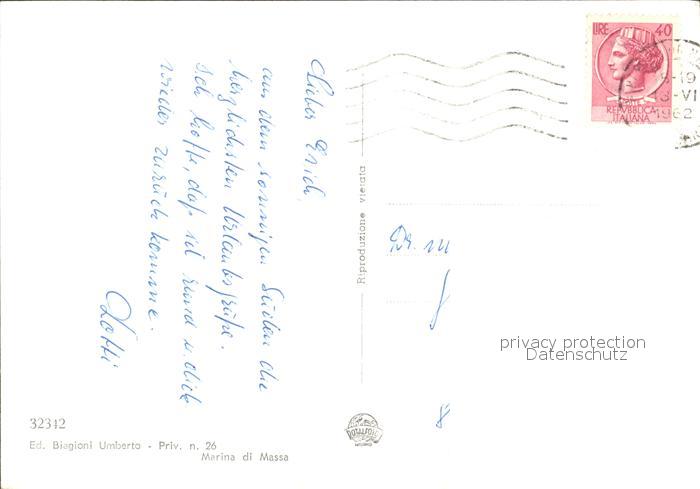 Lieber Erich,
aus dem sonnigen Süden die
herzlichsten Urlaubsgrüße.
Ich hoffe, daß ich rund u. dick
wieder zurück komme.
Lotti
32342
Ed. Biagioni Umberto - Priv. n. 26
Marina di Massa
Riproduzione vietata
LIRE 40
REPVBBLICA
ITALIANA
-19
-VI
1962
Dr. m
8
privacy protection
Datenschutz